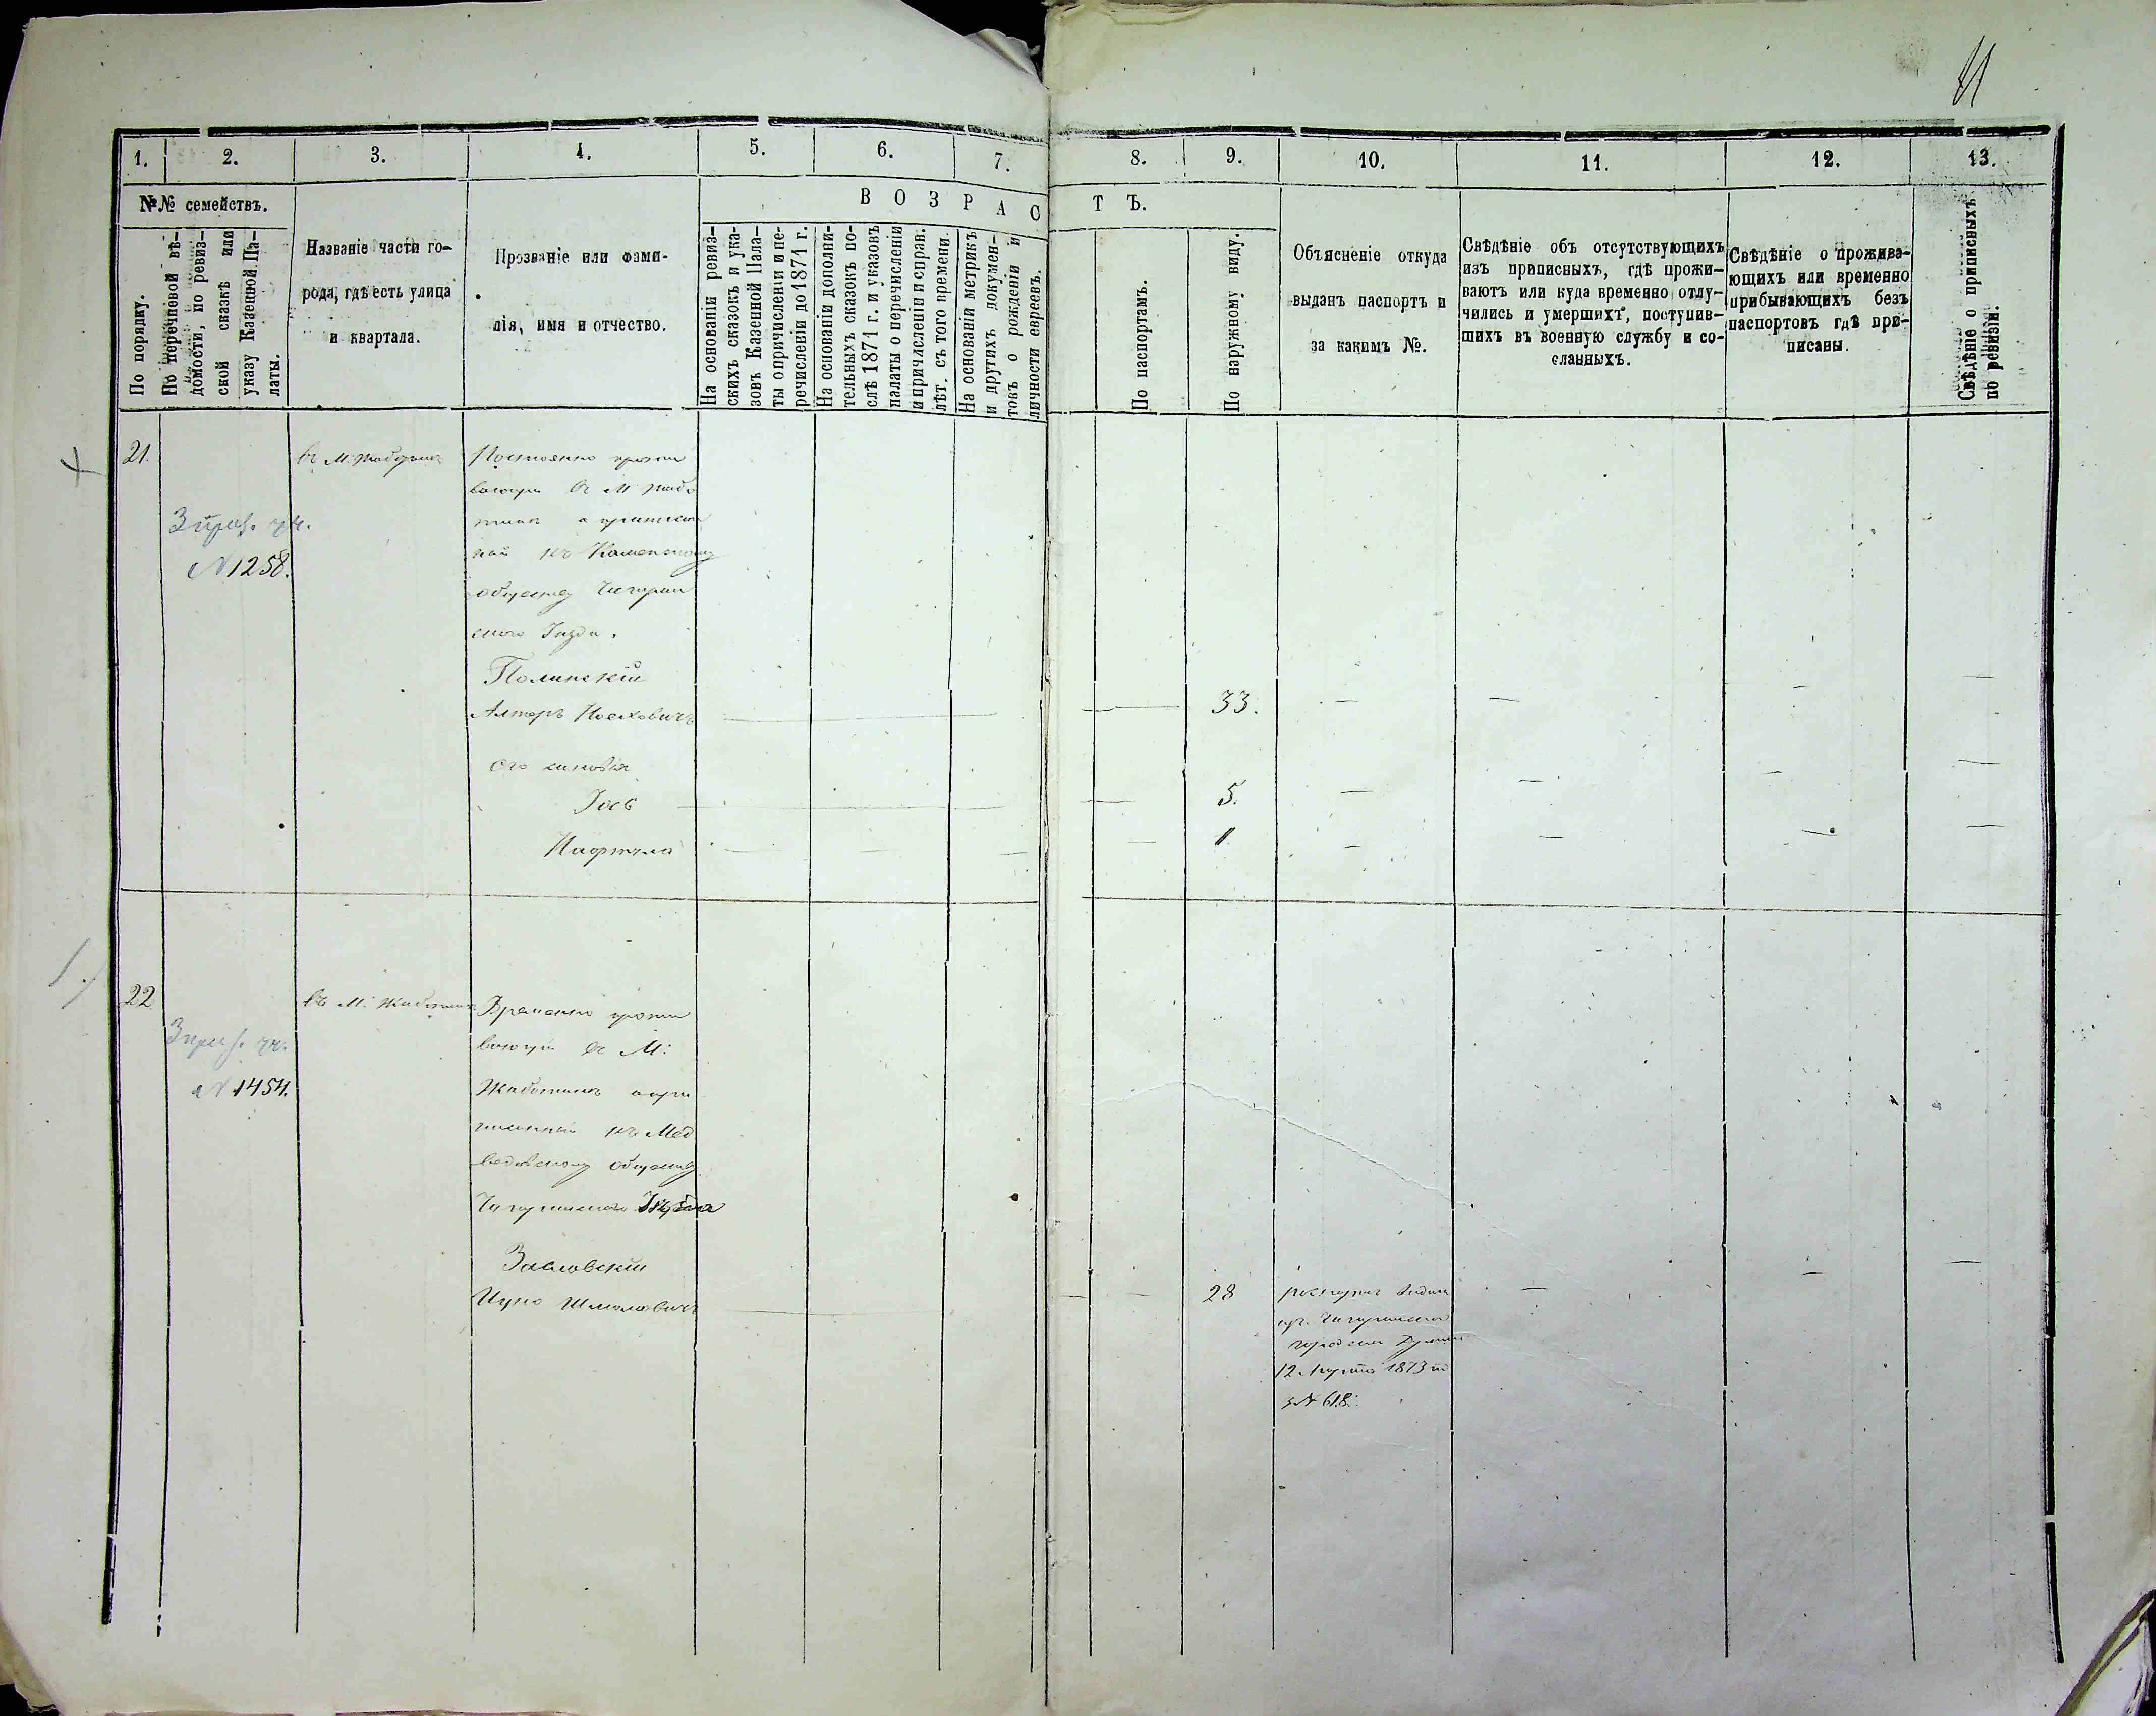 11
1. 2. 3. 4. 5. 6. 7. 8. 9. 10. 11. 12. 13.
№№ семействъ.
По порядку.
По перечневой вѣ-
домости, по ревиз-
ской сказкѣ или
указу Казенной Па-
латы.
Названіе части го-
рода, гдѣ есть улица
и квартала.
Прозваніе или фами-
лія, имя и отчество.
ВОЗРАСТЪ.
На основаніи ревиз-
скихъ сказокъ и ука-
зовъ Казенной Пала-
ты о причисленіи и пе-
речисленіи до 1871 г.
На основаніи дополни-
тельныхъ сказокъ по-
слѣ 1871 г. и указовъ
палаты о перечисленіи
и причисленіи и справ.
лѣт. съ того времени.
На основаніи метрикъ
и другихъ докумен-
товъ о рожденіи и
личности евреевъ.
По паспортамъ.
По наружному виду.
Объясненіе откуда
выданъ паспортъ и
за какимъ №.
Свѣдѣніе объ отсутствующихъ
изъ приписныхъ, гдѣ прожи-
ваютъ или куда временно отлу-
чились и умершихъ, поступив-
шихъ въ военную службу и со-
сланныхъ.
Свѣдѣніе о прожива-
ющихъ или временно
прибывающихъ безъ
паспортовъ гдѣ при-
писаны.
Свѣдѣніе о приписныхъ
по ревизіи.
21.
3 приз. уч.
№ 1258.
въ М. Жаботинѣ
Постоянно прожи
вающій въ М Жабо
тинѣ а приписан
ный къ Каменскому
обществу Чигирин
скаго Уѣзда.
Полинскій
Алтеръ Иосховичъ — — 33. — — — —
Его сыновья
Іось — — 5. — — — —
Нафтула — — — — 1 — — — —
22
3 приз. уч.
№ 1454.
въ М. Жаботинѣ
Временно прожи
вающій въ М:
Жаботинѣ а при
писанный къ Мед
ведовскому обществу
Чигиринскаго Уѣзда
Заславскій
Шмоловичъ — — — 28 — — —
12 Марта 1873 го
з № 618.